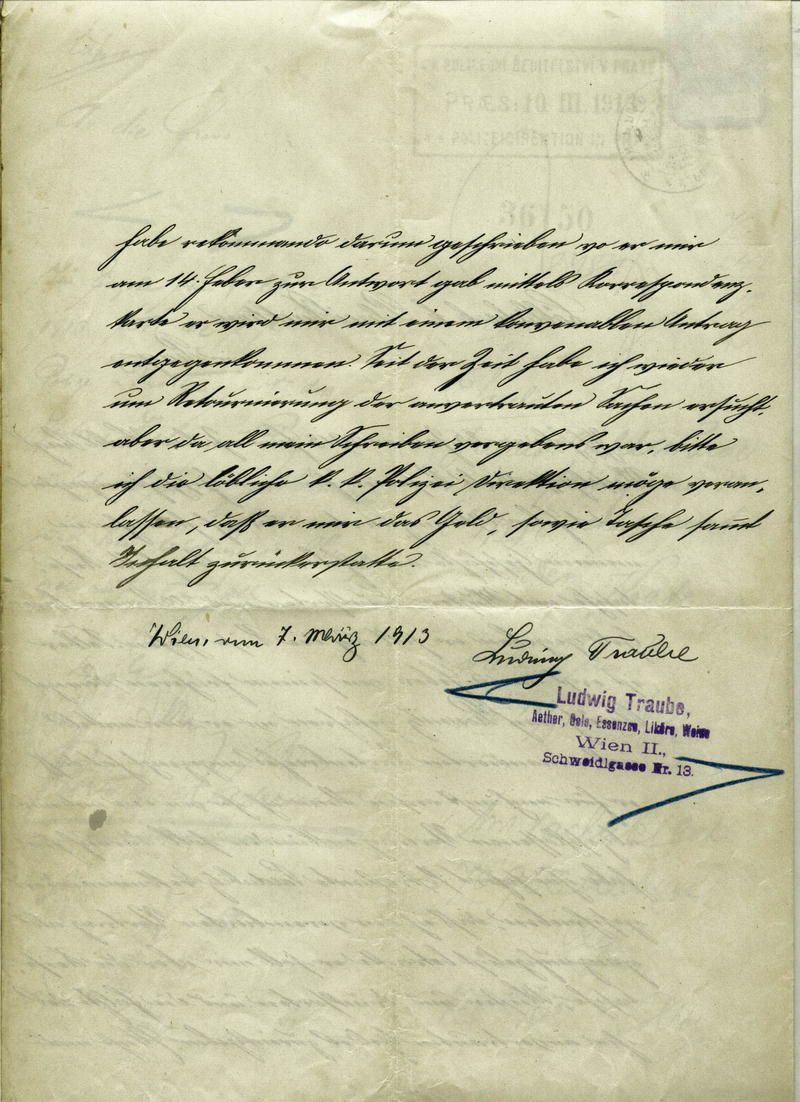 habe rekommando darum geschrieben wo er mir
am 14. Feber zur Antwort gab mittels Korrespondenz-
karte er wird mir mit einem konvenablen Antrag
entgegenkommen. Seit der Zeit habe ich wieder
um Retournierung der anvertrauten Sachen ersucht,
aber da all mein Schreiben vergebens war, bitte
ich die löbliche k. k. Polizei Direktion möge veran-
lassen, daß er mir das Geld, sowie Tasche sam̅t
Inhalt zurückerstatte.
Wien, am 7. März 1913
Ludwig Traube
Ludwig Traube,
Aether, Oele, Essenzen, Liköre, Weine
Wien II.,
Schweidlgasse Nr. 13.
PRÆS: 10 III. 1913
36150